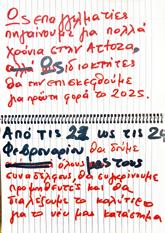 Ως επαγγελματίες
πηγαίναμε για πολλά
χρόνια στην Artoza,
αλλά Ως ιδιοκτήτες
θα την επισκεφθούμε
για πρώτη φορά το 2025.
Από τις 22 ως τις 24
Φεβρουαρίου θα δούμε
όλους μας τους
συναδέλφους, θα συγκρίνουμε
προμηθευτές και θα
διαλέξουμε το καλύτερο
για το νέο μας κατάστημα